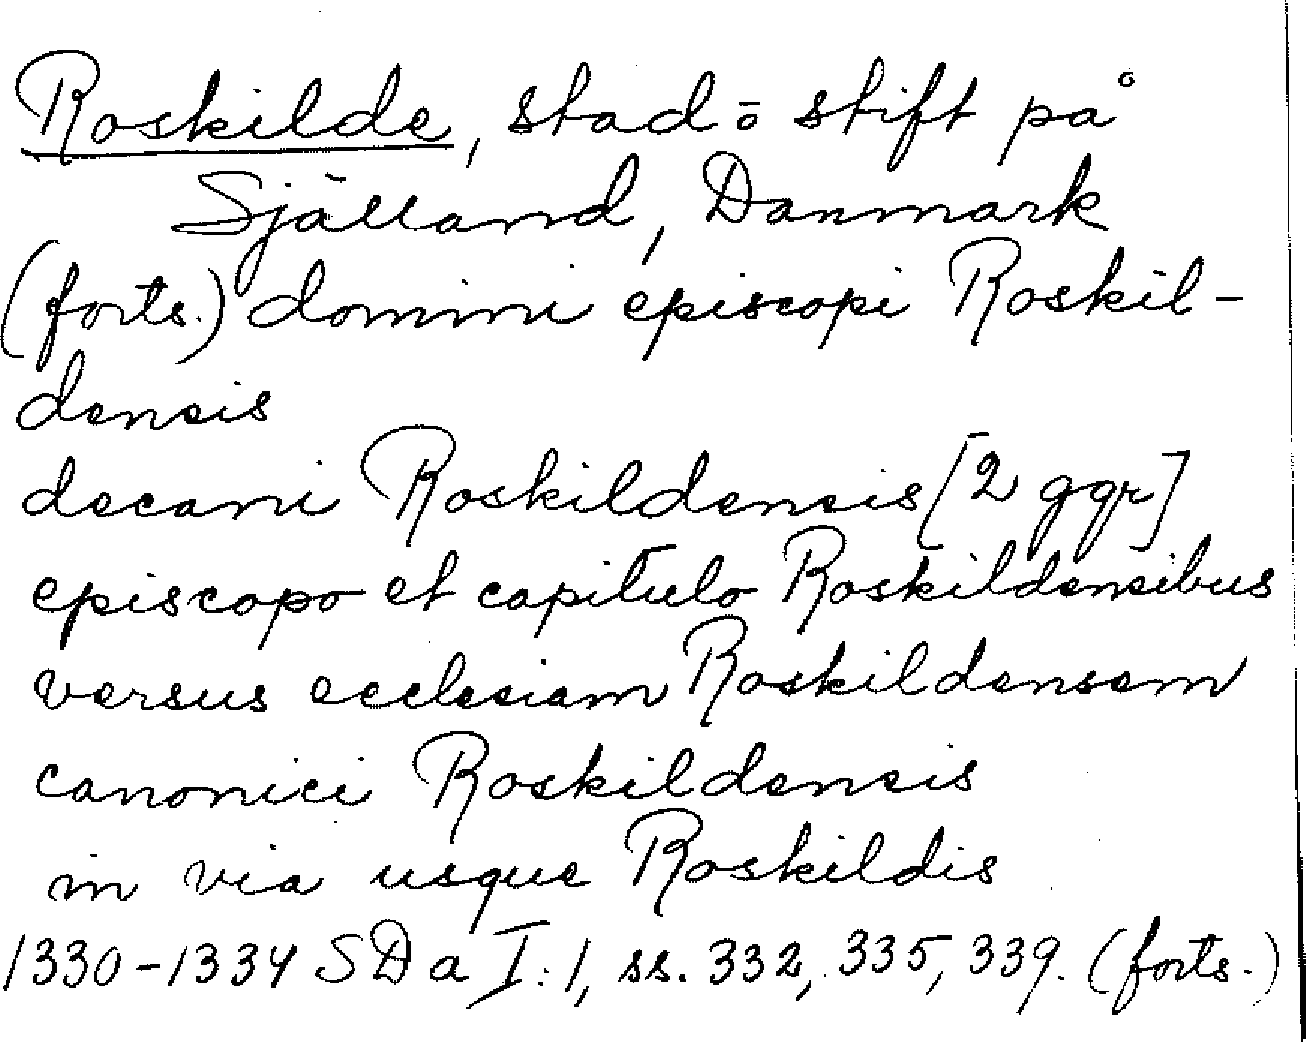 Roskilde, stad o stift på
Själland, Danmark
(forts.) domini episcopi Roskil-
densis
decani Roskildensis [2 ggr]
episcopo et capitulo Roskildensibus
versus ecclesiam Roskildensem
canonici Roskildensis
in via usque Roskildis
1330-1334 SD a I:1, ss. 332, 335, 339. (forts.)